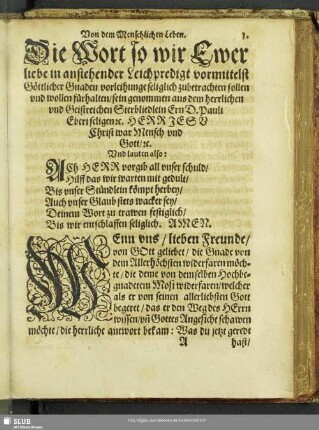 Von dem Menschlichen Leben. 1.
Die Wort so wir Ewer
liebe in anstehender Leichpredigt vormittelst
Göttlicher Gnaden vorleihunge seliglich zubetrachten sollen
vnd wollen fürhalten/ sein genommen aus dem herrlichen
vnd Geistreichen Sterbliedlein Ern D. Pauli
Eberi seligen ꝛc. HERR JESV
Christ war Mensch vnd
Gott/ ꝛc.
Vnd lauten also:
Ach HERR vorgib all vnser schuld/
Hilff das wir warten mit gedult/
Bis vnser Stündlein kömpt herbey/
Auch vnser Glaub stets wacker sey/
Deinem Wort zu trawen festiglich/
Bis wir entschlaffen seliglich. AMEN.
WEnn vns/ lieben Freunde/
von GOtt geliebet/ die Gnade von
dem Allerhöchsten widerfaren möch-
te/ die deme von demselben Hochbe-
gnadetem Mosi widerfaren/ welcher
als er von seinen allerliebsten Gott
begeret/ das er den Weg des HErrn
wissen/ vñ Gottes Angesicht schawen
möchte/ die herrliche antwort bekam: Was du jetzt geredt
A hast/
SLUB